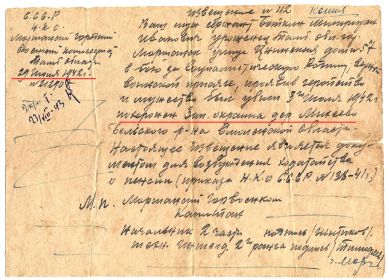 С.С.С.Р.
Н.К.О.
Моршанский городской
Военный комиссариат
Тамб. области
29 июля 1942г.
извещение № 112 Копия
Ваш муж сержант Митрофан
Иванович уроженец Тамб. обл. гор.
Моршанск улица дом № 7
в бою за Социалистическую Родину, верный
воинской присяге, проявив геройство
и мужество был убит 3го июля 1942г.
похоронен Зап. окраина дер. Михеево
Бельского р-на Смоленской области.
Настоящее извещение является доку-
ментом для возбуждения ходатайства
о пенсии (приказ Н.К.О С.С.С.Р № 138-41г.)
М.п. Моршанский Горвоенком
Капитан
Начальник 2 части подпись
техн. интенд. 2го ранга подпись